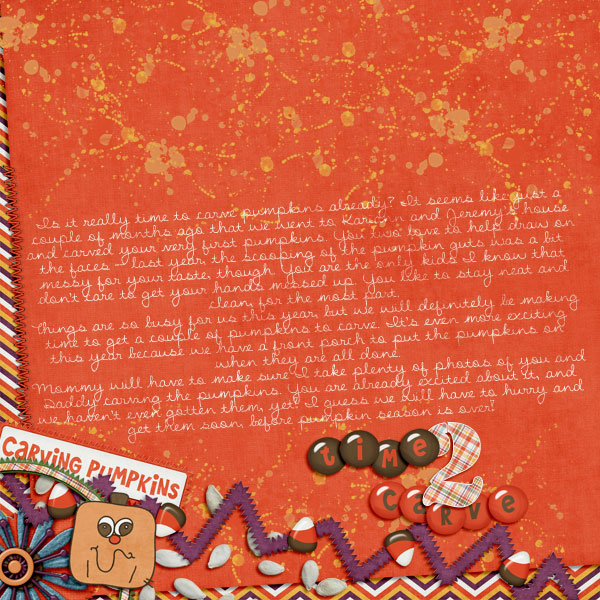 Is it really time to carve pumpkins already? It seems like just a
couple of months ago that we went to and Jeremy's house
and carved your very first pumpkins. You two love to help draw on
the faces - last year the scooping of the pumpkin guts was a bit
messy for your taste, though. You are the only kids I know that
don't care to get your hands messed up. You like to stay neat and
clean, for the most part.
Things are so busy for us this year, but we will definitely be making
time to get a couple of pumpkins to carve. It's even more exciting
this year because we have a front porch to put the pumpkins on
when they are all done.
Mommy will have to make sure I take plenty of photos of you and
Daddy carving the pumpkins. You are already excited about it, and
we haven't even gotten them, yet! I guess we will have to hurry and
get them soon, before pumpkin season is over!
CARVING PUMPKINS
time 2
carve